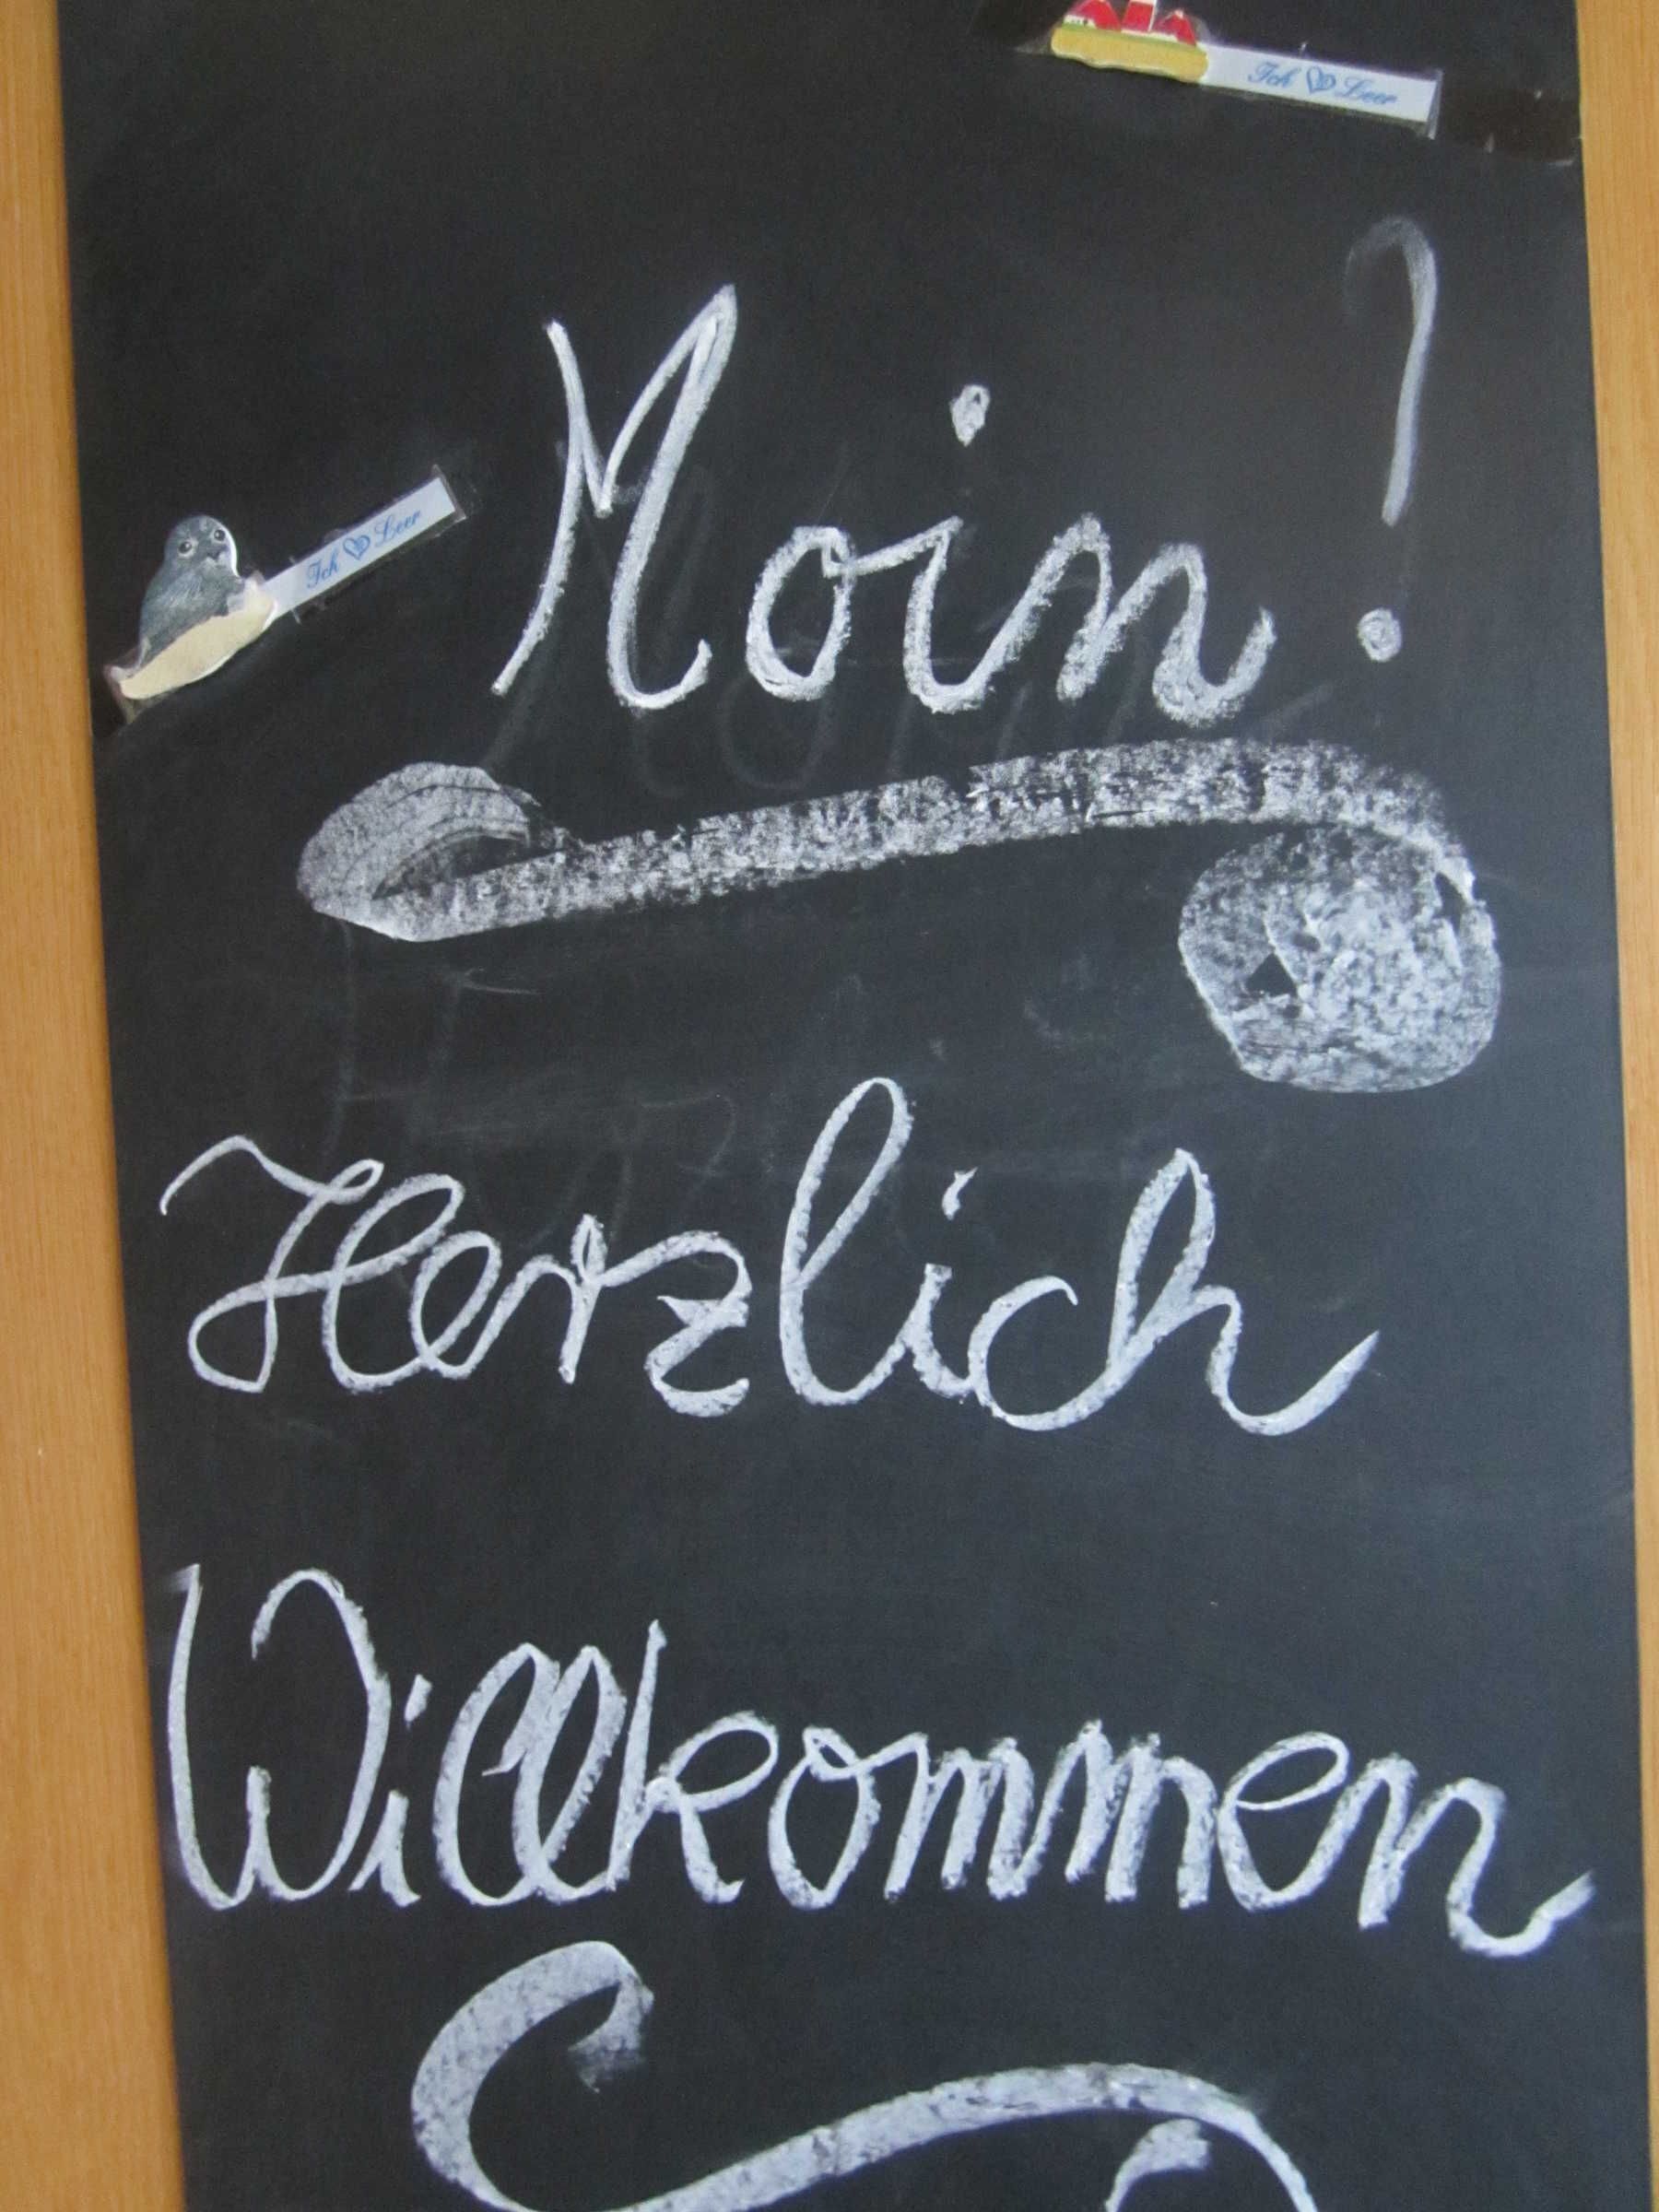 Ich ♥ Leer
Moin!
Ich ♥ Leer
Herzlich
Willkommen